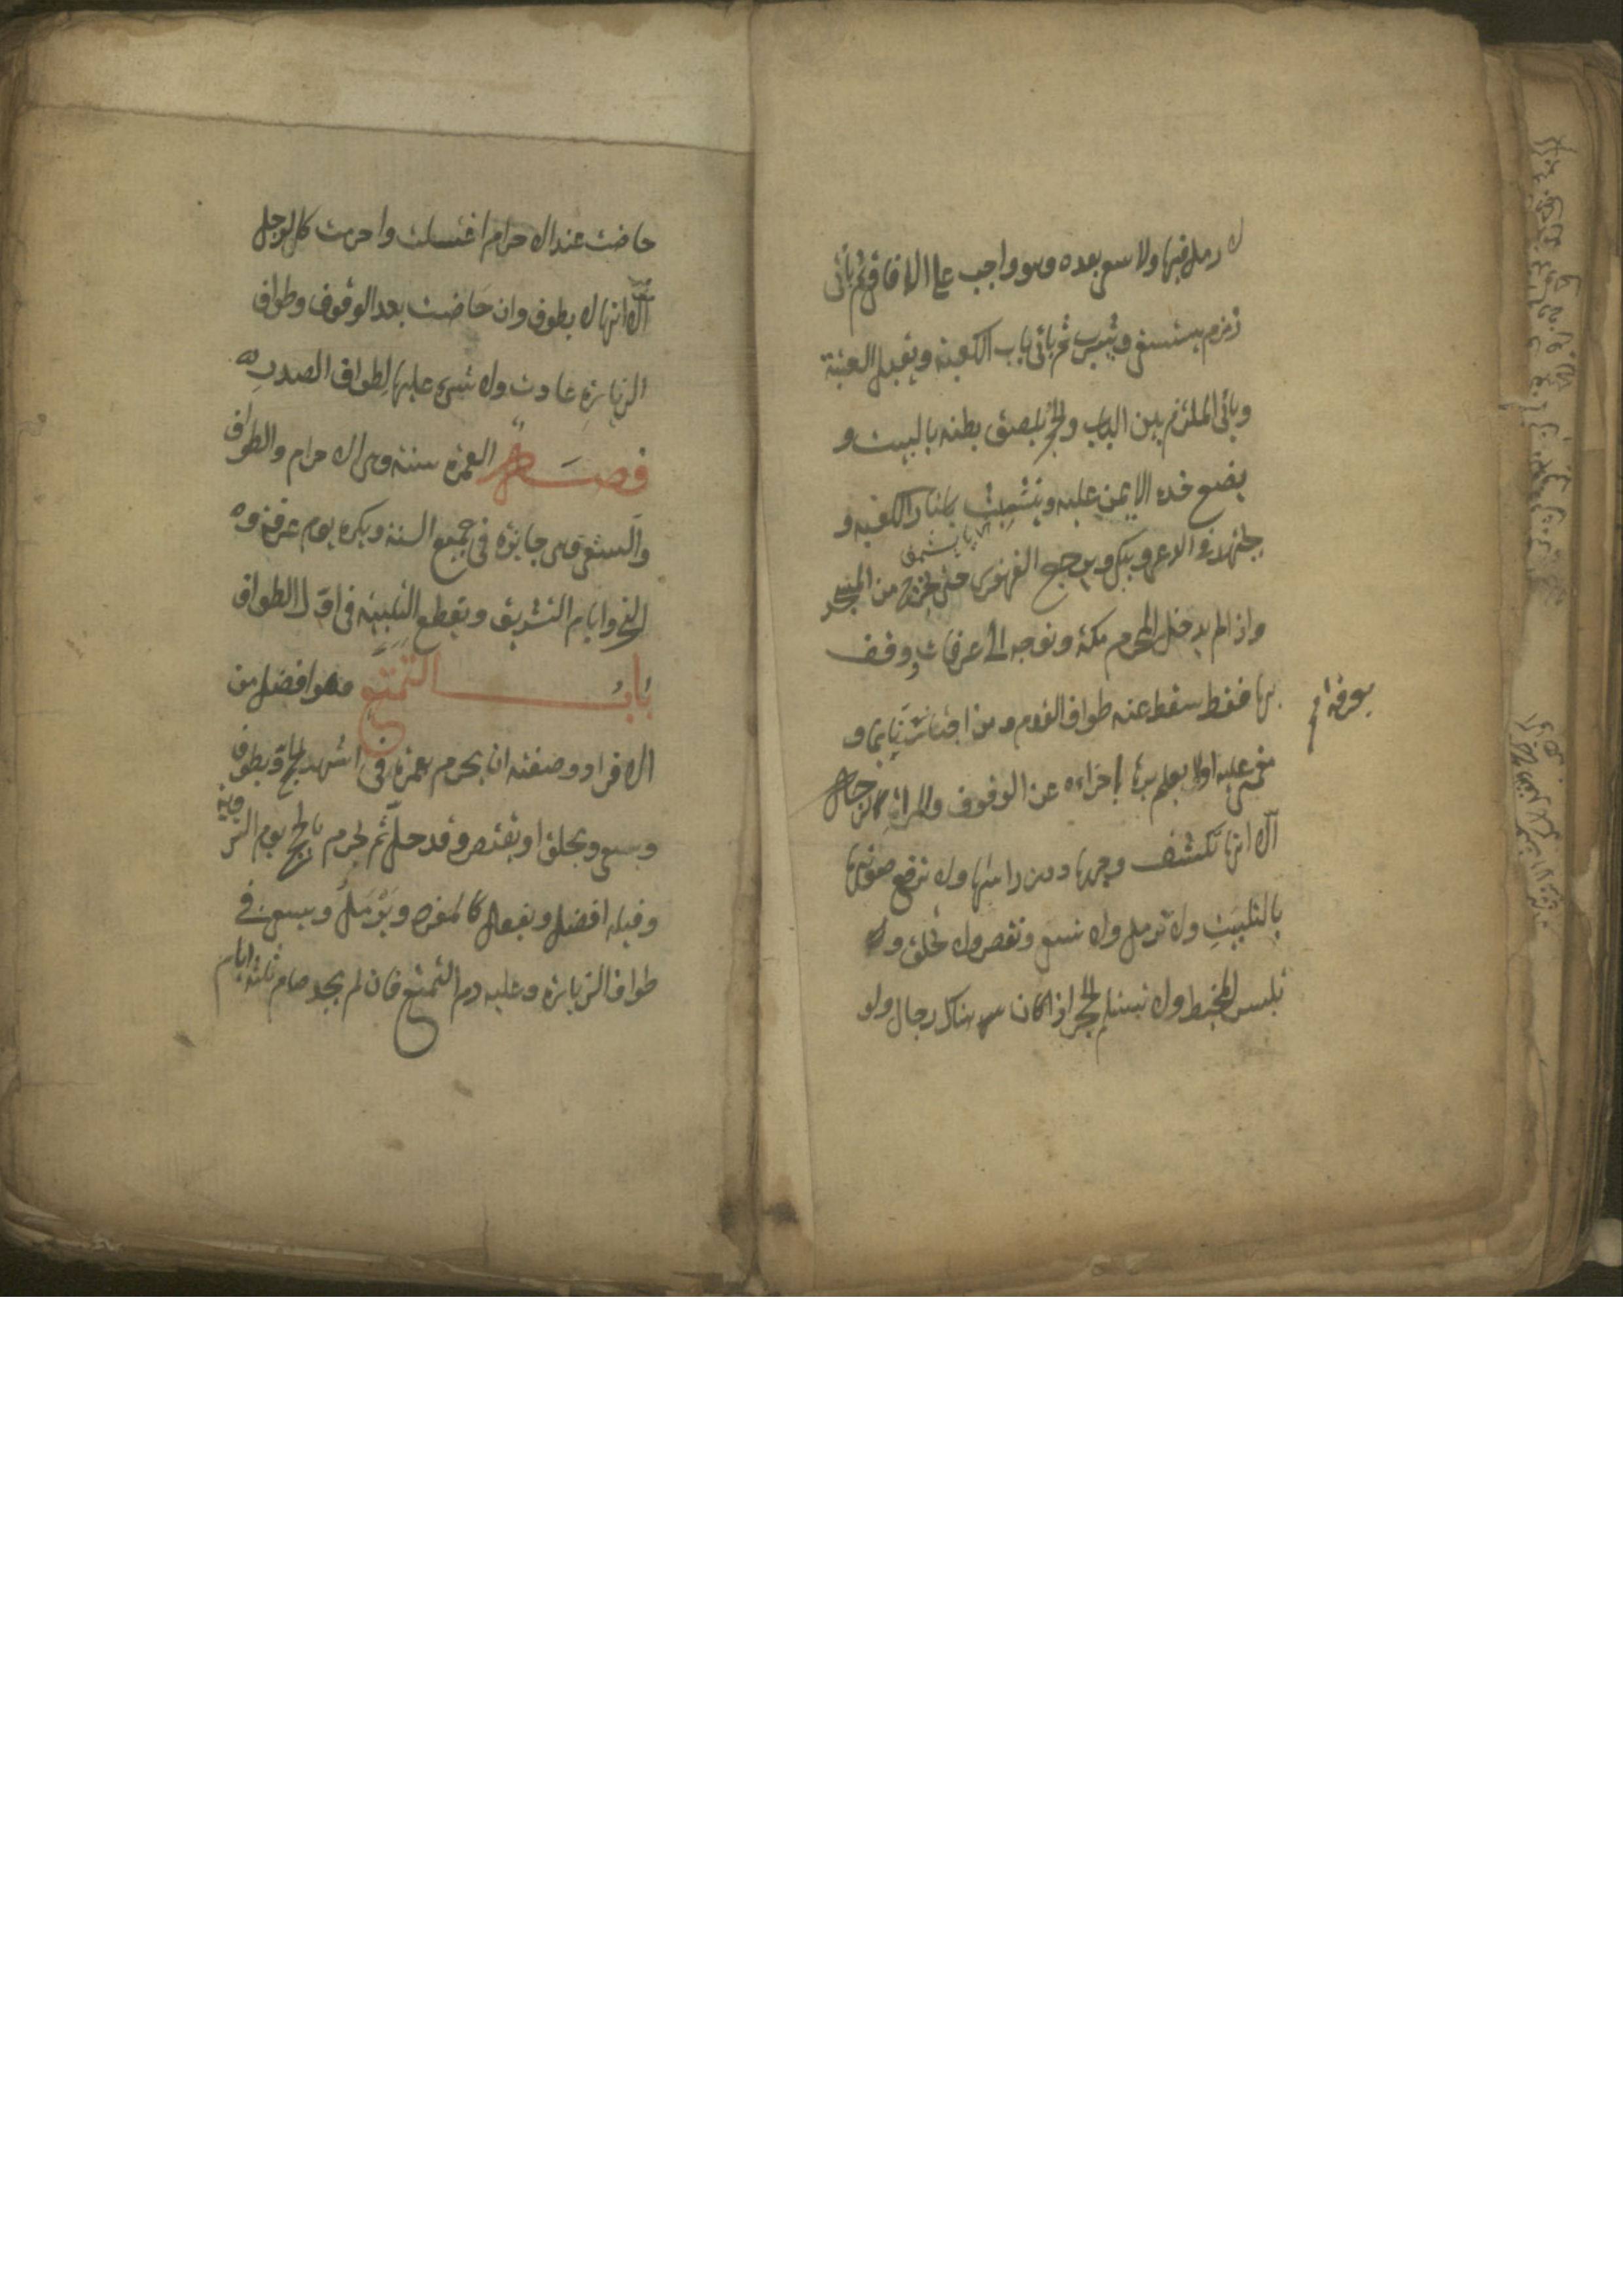 لا رمل فيها ولا سعى بعده وهو واجب على الافاقى ثم يأتى
زمزم يستسقى ويشرب ثم يأتى باب الكعبة ويقبل العتبة
ويأتى الملتزم بين الباب والحجر يلصق بطنه بالبيت و
يضع خده الايمن عليه ويتشبث باستار الكعبة و
يجتهد فى الدعاء ويبكى ويرجع القهقرى حتى يخرج من المسجد
واذا لم يدخل المحرم مكة وتوجه الى عرفات ووقف
بها فقط سقط عنه طواف القدوم ومن اجتاز نايما و
مغمى عليه اولا يعلم بها اجزاءه عن الوقوف والمراة كالرجل
الا انها تكشف وجهها دون راسها ولا ترفع صوتها
بالتلبية ولا ترمل ولا تسعى وتقصر ولا تحلق و
تلبس المخيط ولا تستلم الحجر اذا كان هناك رجال ولو
بعرفة
حاضت عند الاحرام اغتسلت واحرمت كالرجل
الا انها لا يطوف وان حاضت بعد الوقوف وطواف
الزيارة عادت ولا شىء عليها لطواف الصدر
فصل العمرة سنة وهى الاحرام والطواف
والسعى وهى جايزة فى جميع السنة ويكره يوم عرفة و
النحر وايام التشريق ويقطع التلبية فى اول الطواف
باب التمتع وهو افضل من
الافراد وصفته ان يحرم بعمرة فى اشهر الحج ويطوف
ويسعى ويحلق او يقتصر وقد حل ثم يحرم بالحج يوم التروية
وقبله افضل ويفعل كالمفرد ويرمل ويسعى فى
طواف الزيارة وعليه دم التمتع فان لم يجد صام ثلثة ايام